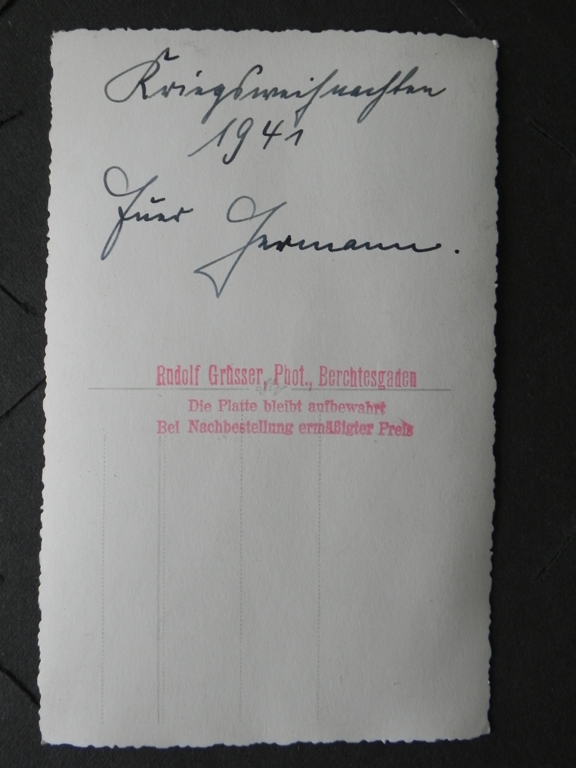 Kriegsweihnachten
1941
Fuer Hermann.
Rudolf Grüsser, Phot., Berchtesgaden
Die Platte bleibt aufbewahrt
Bei Nachbestellung ermäßigter Preis